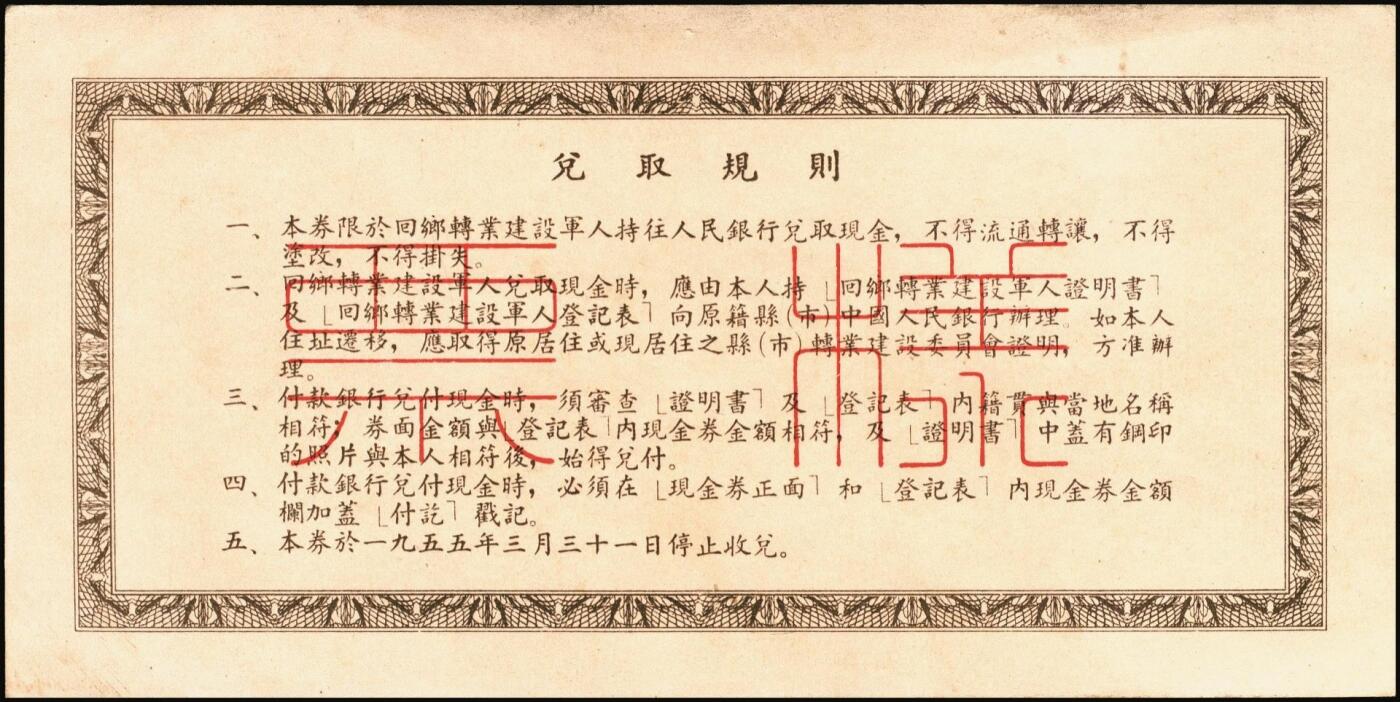 兌取規則
一、本券限於回鄉轉業建設軍人持往人民銀行兌取現金，不得流通轉讓，不得
塗改，不得掛失。
二、回鄉轉業建設軍人兌取現金時，應由本人持「回鄉轉業建設軍人證明書」
及「回鄉轉業建設軍人登記表」向原籍縣(市)中國人民銀行辦理。如本人
住址遷移，應取得原居住或現居住之縣(市)轉業建設委員會證明，方准辦
理。
三、付款銀行兌付現金時，須審查「證明書」及「登記表」內籍貫與當地名稱
相符；券面金額與「登記表」內現金券金額相符，及「證明書」中蓋有鋼印
的照片與本人相符後，始得兌付。
四、付款銀行兌付現金時，必須在「現金券正面」和「登記表」內現金券金額
欄加蓋「付訖」戳記。
五、本券於一九五五年三月三十一日停止收兌。
票樣